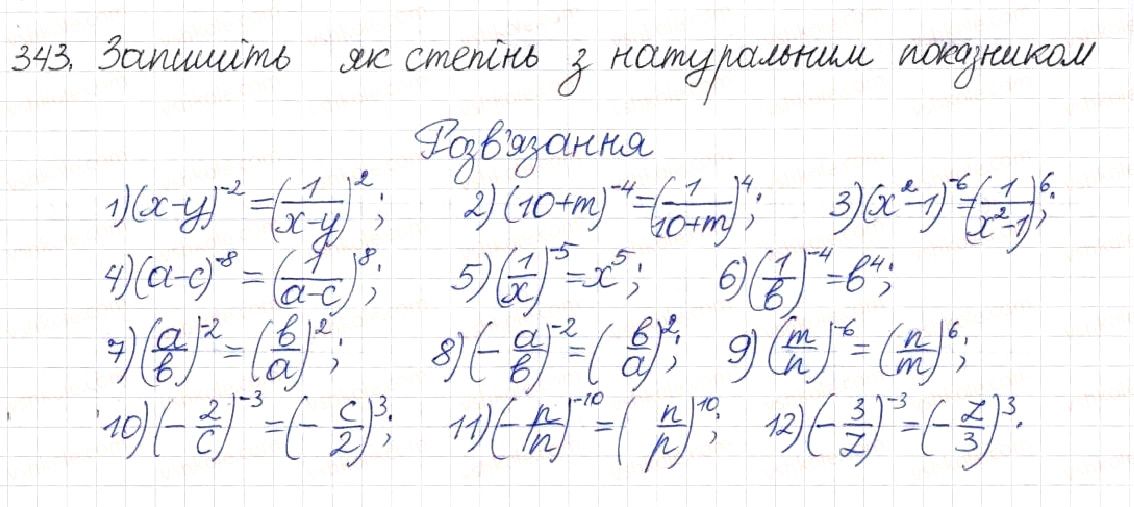 343. Запишіть як степінь з натуральним показником
Розв'язання
1) (x-y)^{-2} = (\frac{1}{x-y})^{2}; 2) (10+m)^{-4} = (\frac{1}{10+m})^{4}; 3) (x^{2}-1)^{-6} = (\frac{1}{x^{2}-1})^{6};
4) (a-c)^{-8} = (\frac{1}{a-c})^{8}; 5) (\frac{1}{x})^{-5} = x^{5}; 6) (\frac{1}{b})^{-4} = b^{4};
7) (\frac{a}{b})^{-2} = (\frac{b}{a})^{2}; 8) (-\frac{a}{b})^{-2} = (\frac{b}{a})^{2}; 9) (\frac{m}{n})^{-6} = (\frac{n}{m})^{6};
10) (-\frac{2}{c})^{-3} = (-\frac{c}{2})^{3}; 11) (-\frac{p}{n})^{-10} = (\frac{n}{p})^{10}; 12) (-\frac{3}{z})^{-3} = (-\frac{z}{3})^{3}.